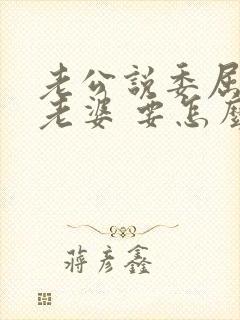 老公說委屈
老婆 要怎麼
蔣彥鑫